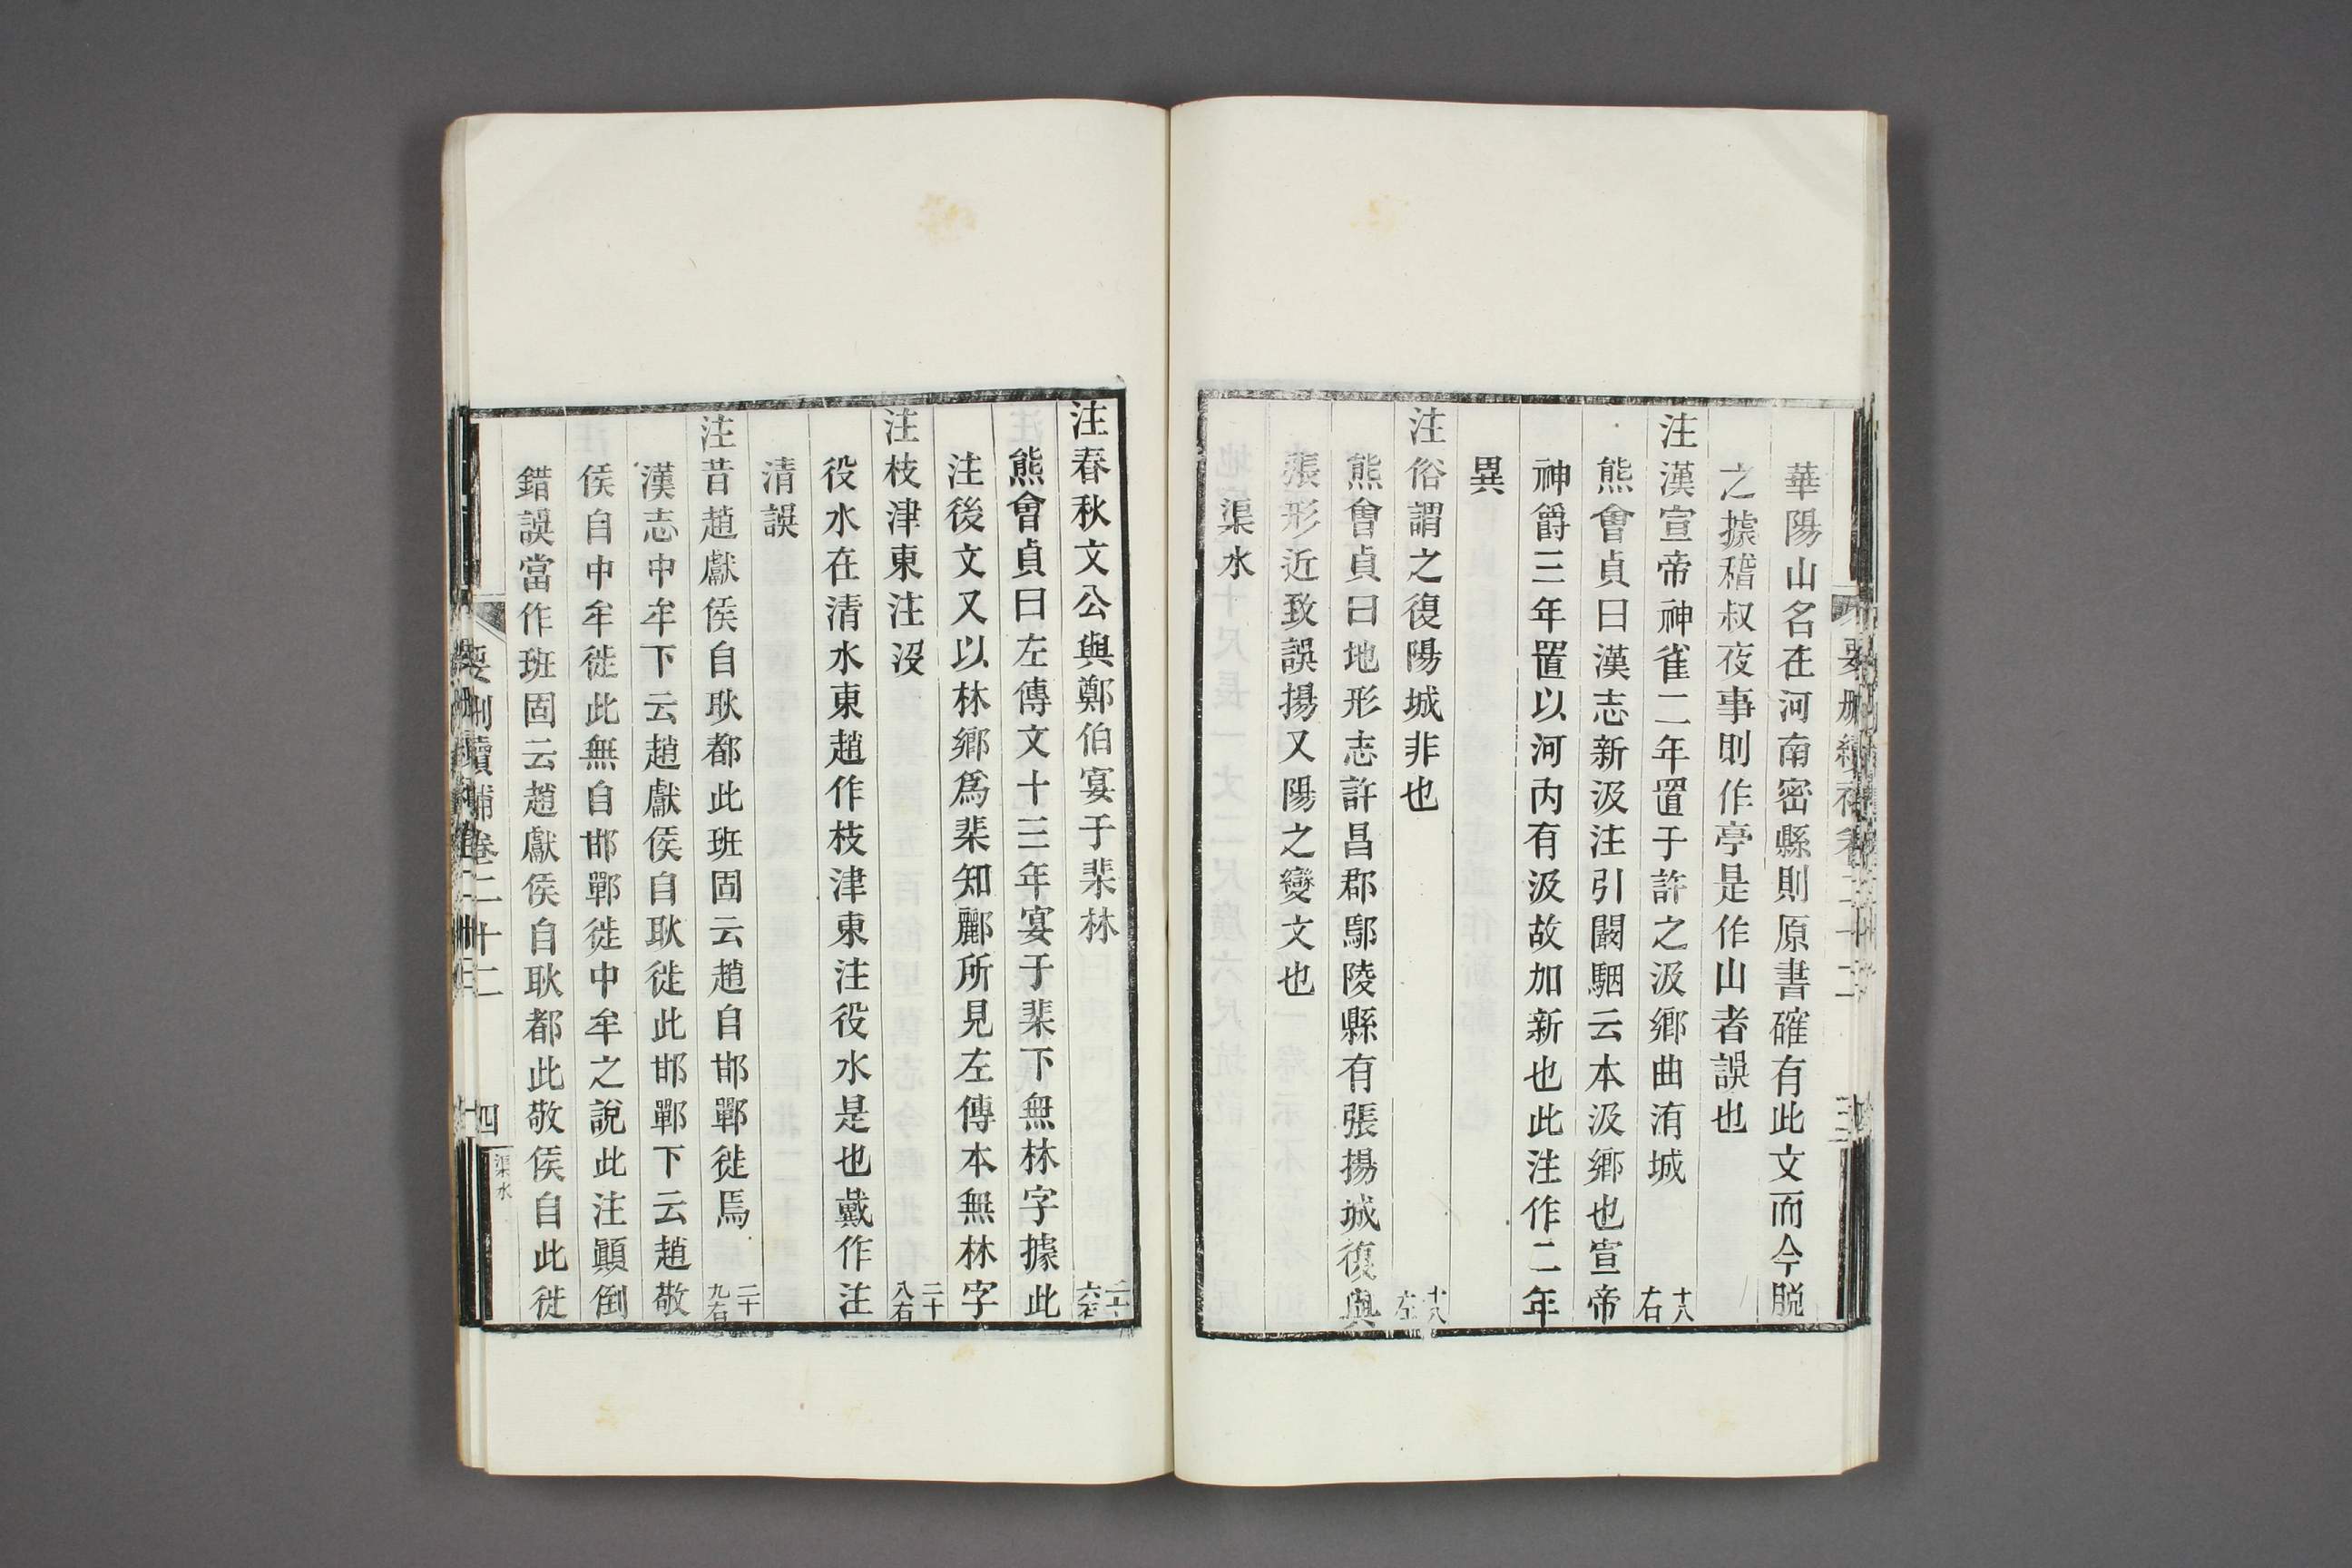 華陽山名在河南密縣則原書確有此文而今脱
之據稽叔夜事則作亭是作山者誤也
注漢宣帝神雀二年置于許之汲鄉曲洧城 十八右
熊會貞曰漢志新汲注引闞駰云本汲鄉也宣帝
神爵三年置以河內有汲故加新也此注作二年
異
注俗謂之復陽城非也 十八左
熊會貞曰地形志許昌郡鄢陵縣有張揚城復與
張形近致誤揚又陽之變文也
渠水
注春秋文公與鄭伯宴于棐林 二十六右
熊會貞曰左傳文十三年宴于棐下無林字據此
注後文又以林鄉爲棐知酈所見左傳本無林字
注枝津東注沒 二十八右
役水在清水東趙作枝津東注役水是也戴作注
清誤
注昔趙獻侯自耿都此班固云趙自邯鄲徙焉 二十九右
漢志中牟下云趙獻侯自耿徙此邯鄲下云趙敬
侯自中牟徙此無自邯鄲徙中牟之說此注顚倒
錯誤當作班固云趙獻侯自耿都此敬侯自此徙
要刪續補卷二十二
四
渠水